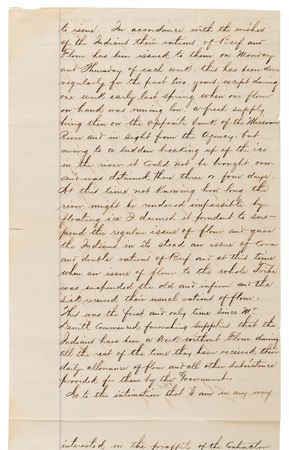 to issue. In accordance with the wishes
of the Indians their rations of Beef and
Flour has been issued to them on Monday
and Thursday of each week. this has been done
regularly for the last two years except during
one week early last spring when our flour
on hand was running low a fresh supply
being then on the opposite bank of the Missouri
River and in sight from the Agency. but
owing to a sudden breaking up of the ice
in the river it could not be brought over
and was detained there three or four days.
At this time not knowing how long the
river might be rendered impassible by
floating ice I deemed it prudent to sus-
pend the regular issue of flour and gave
the Indians in its stead an issue of corn
and double rations of Beef and at this time
when an issue of flour to the whole Tribe
was suspended the old and infirm and the
sick received their usual rations of flour.
This was the first and only time since Mr
commenced furnishing supplies that the
Indians have been a week without flour during
all the rest of the time they have received their
daily allowance of flour and all other subsistance
provided for them by the Government.
As to the intimation that I am in any way
interested in the proffits of the Contractor